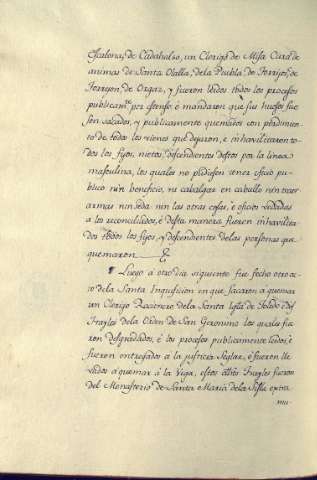 Escalona, de Cadahalso, un Clerigo de Misa Cura de
animas de Santa Olalla, de la Puebla, de Torrijos, de
Torrejon, de Orgaz, y fueron leidos todos los procesos
publicam.te por estenso è mandaron que sus huesos fue
sen sacados, y publicamente quemados con perdimien
to de todos los vienes que dejaron, è inhavilitaron to
dos los fijos, nietos, descendientes destos por la linea
masculina, los quales no pudiesen tener oficio pu
blico ni'n beneficio, ni cabalgar en caballo nin traer
armas nin seda nin las otras cosas, è oficios vedados
a los reconciliados, è desta manera fueron inhavilita
dos todos los fijos, y descendientes de las personas que
quemaron.
Luego à otro dia siguiente fue fecho otro ac
to de la Santa Inquisicion en que sacaron a quemar
un Clerigo Racionero de la Santa Igl.a de Toledo è dos
Frayles de la Orden de San Geronimo los quales fue
ron desgradados, è los procesos publicamente leidos, è
fueron entregados a la justicia Seglar, è fueron lle
vados à quemar à la Vega, estos dhos Frayles fueron
del Monasterio de Santa Maria de la Sisla extra
mu-